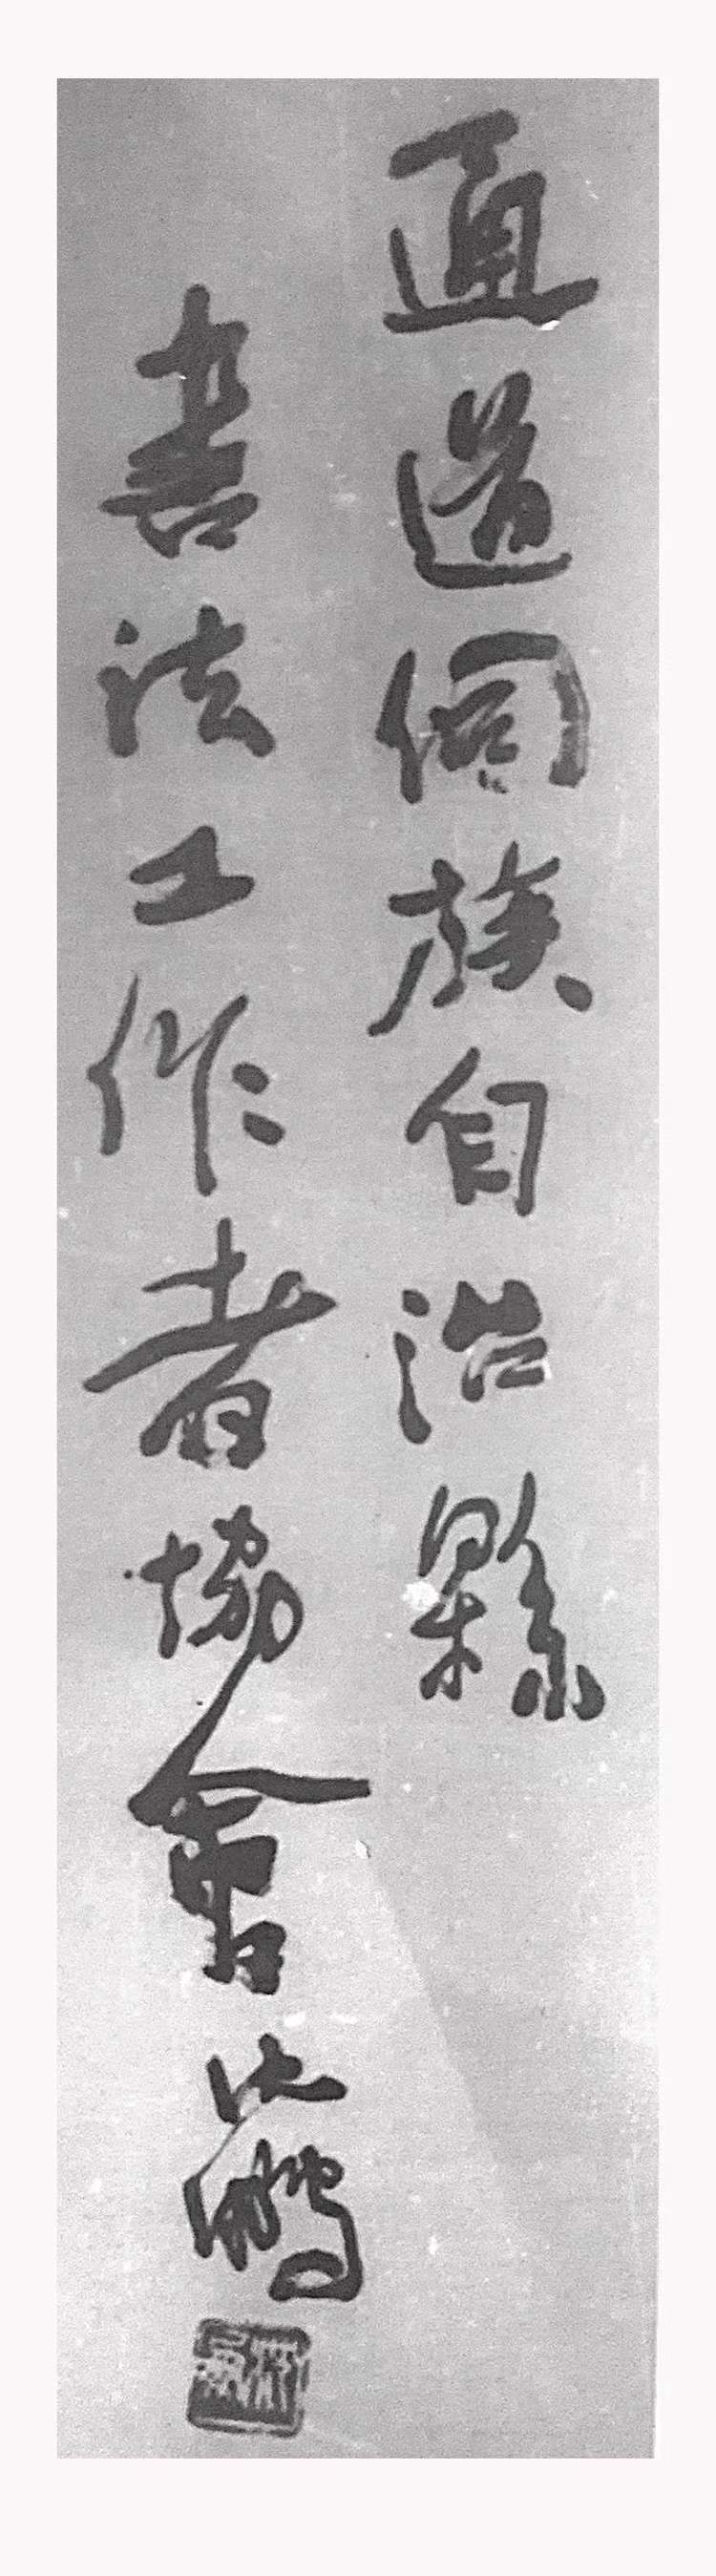 通道侗族自治縣
書法工作者協會
沈鵬